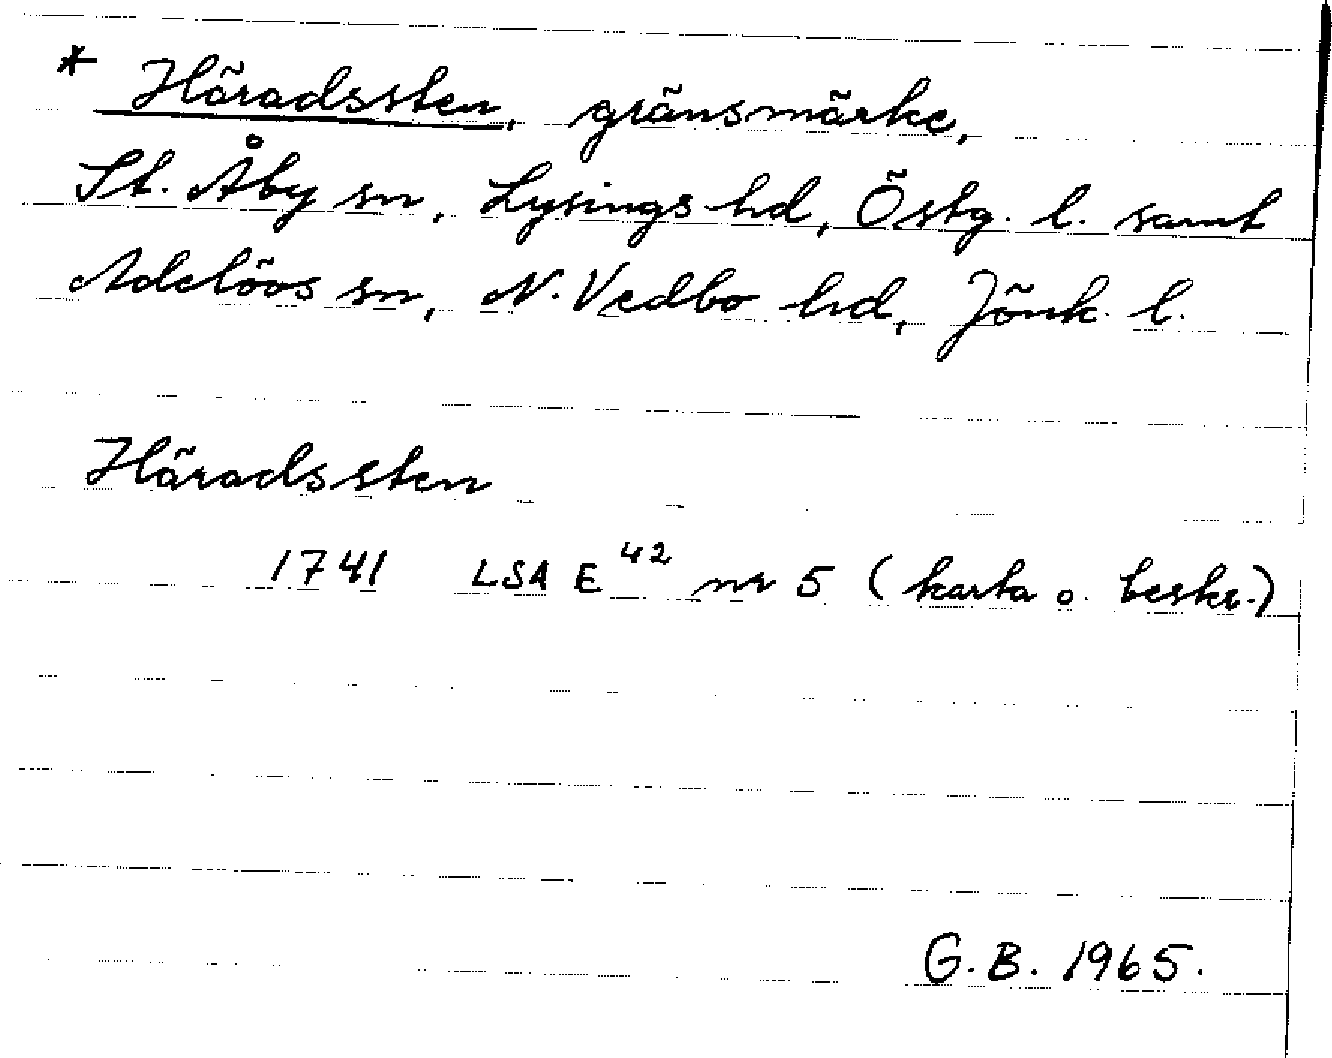 * Häradssten, gränsmärke,
St. Åby sn, Lysings hd, Östg. l. samt
Adelövs sn, N. Vedbo hd, Jönk. l.
Häradssten
1741 LSA E 42 nr 5 (karta o. beskr.)
G.B. 1965.